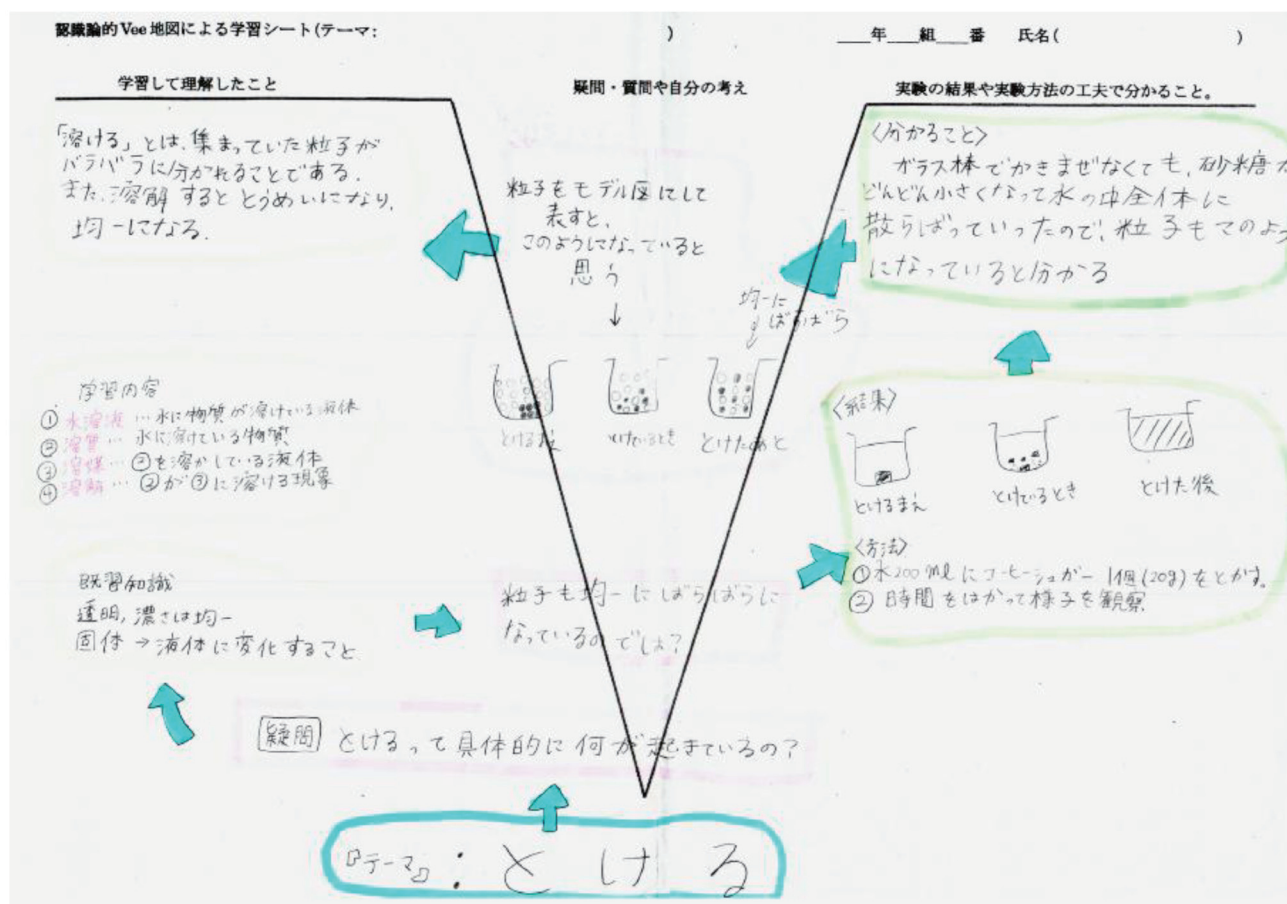 認識論的Vee地図による学習シート(テーマ:                    )
___年___組___番 氏名(                    )
学習して理解したこと
「溶ける」とは、集まっていた粒子が
バラバラに分かれることである.
また、溶解するととうめいになり、
均一になる.
学習内容
①水溶液…水に物質が溶けている液体
②溶質…水に溶けている物質
③溶媒…②を溶かしている液体
④溶解…②が③に溶ける現象
既習知識
透明,濃さは均一
固体→液体に変化すること
疑問・質問や自分の考え
粒子をモデル図にして
表すと、
このようになっていると
思う
↓
均一に
ばらばら
とけるまえ
とけているとき
とけたあと
粒子も均一にばらばらに
なっているのでは?
疑問 とけるって具体的に何が起きているの?
『テーマ』:とける
実験の結果や実験方法の工夫で分かること。
〈分かること〉
ガラス棒でかきまぜなくても、砂糖が
どんどん小さくなって水の中全体に
散らばっていったので、粒子もそのよう
になっていると分かる
〈結果〉
とけるまえ
とけているとき
とけた後
〈方法〉
①水200mlにコーヒーシュガー1個(20g)をとかす。
②時間をはかって様子を観察